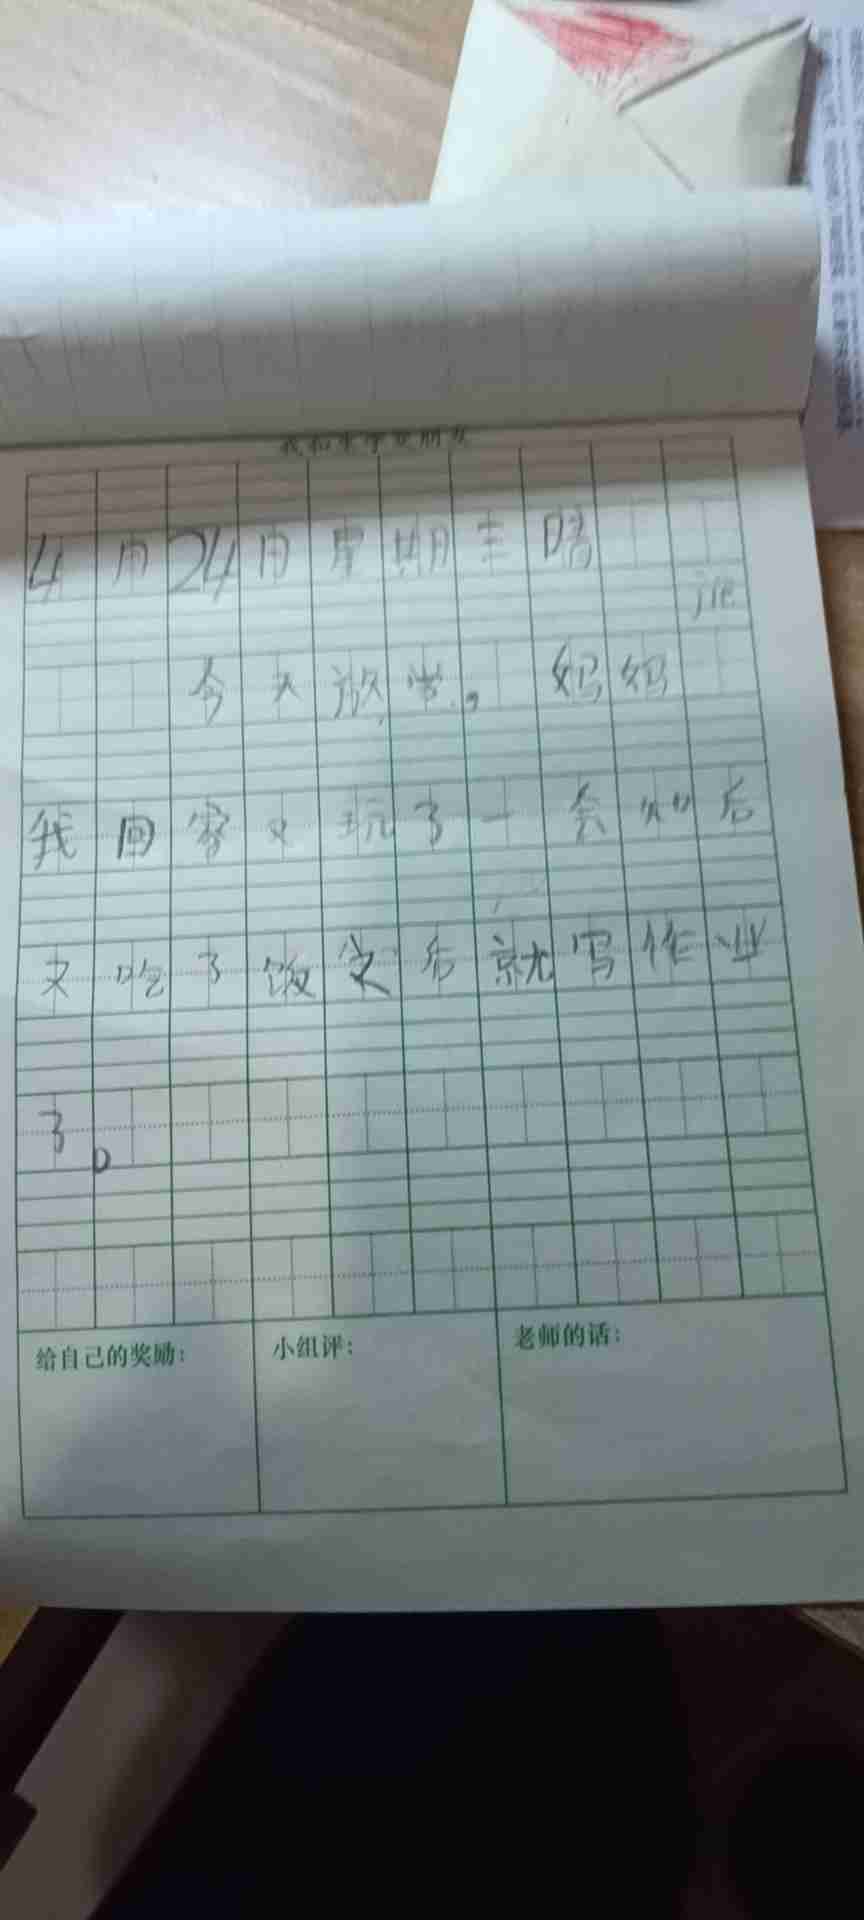 我和小学生朋友
4月24日星期三晴
jie
今天放学，妈妈
我回家又玩了一会然后
又吃了饭然后就写作业
了。
给自己的奖励：
小组评：
老师的话：